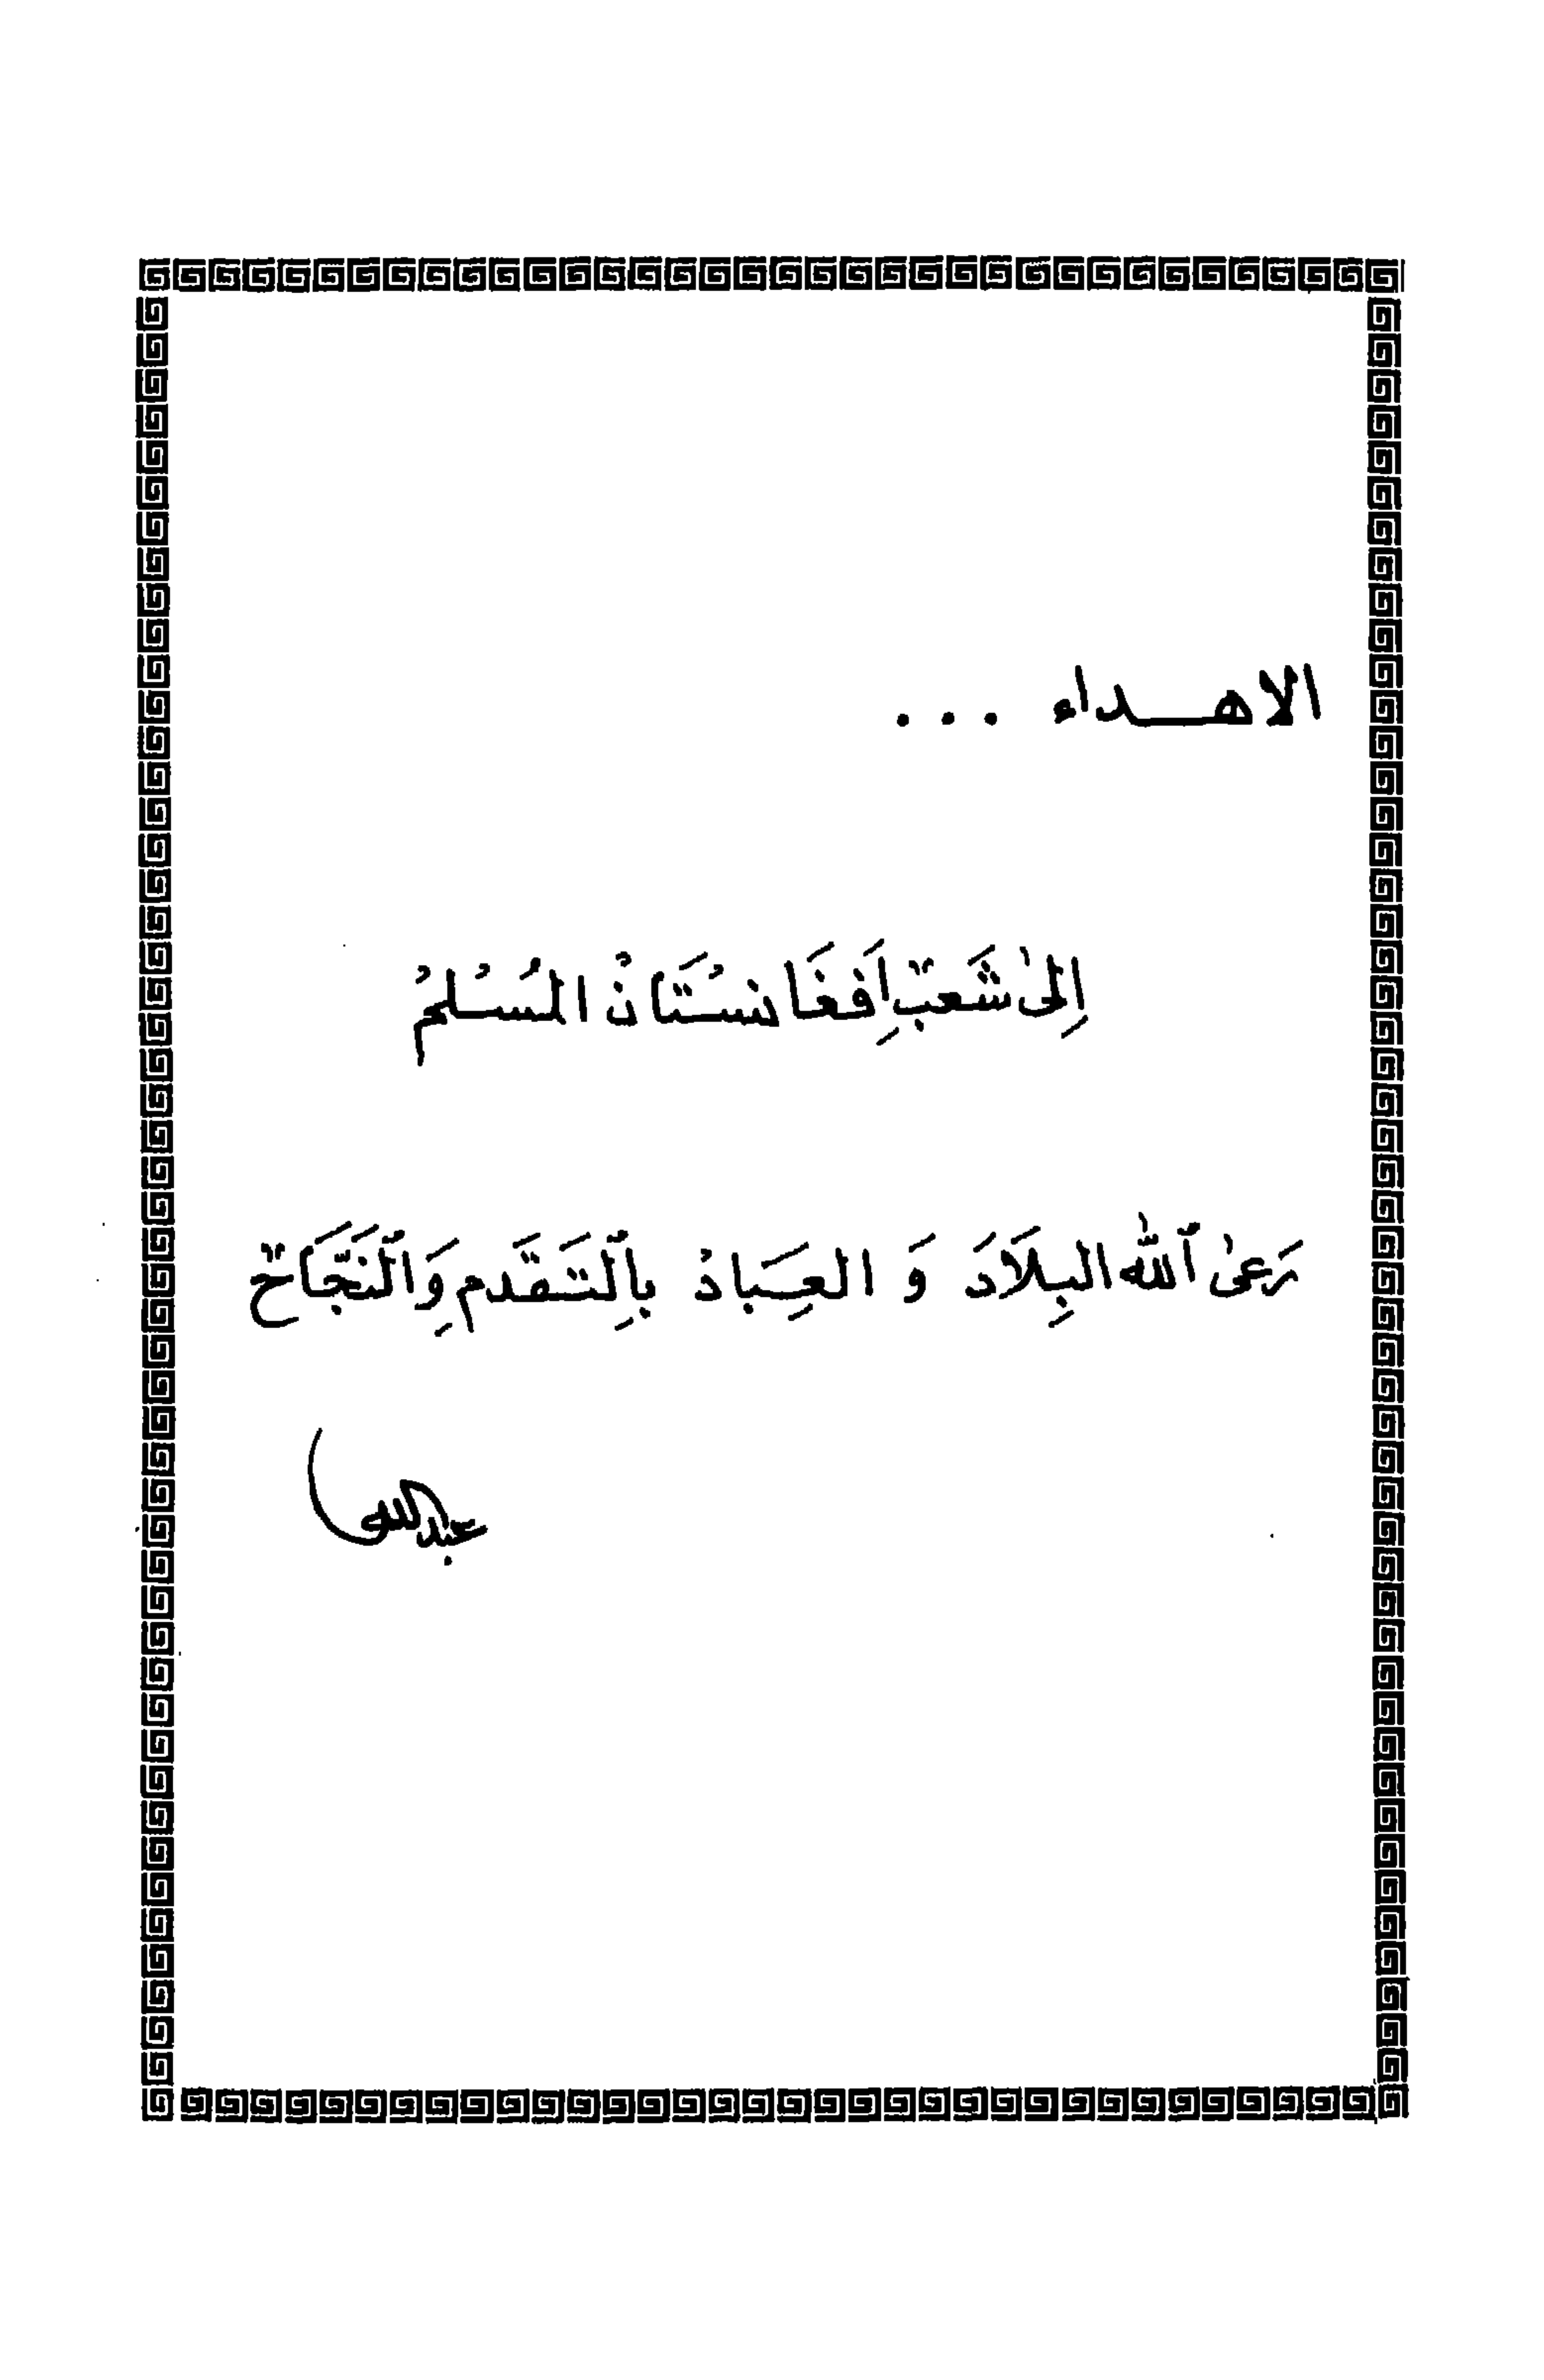 الاهـــداء ...
اِلىٰ شَعبِ اَفغَانسْتَانْ المُسْلمْ
رَعىٰ ٱللّٰه البِلَادَ وَ العِبَادْ بِالتَّقَدم وَالنَّجَاح
عبدالله